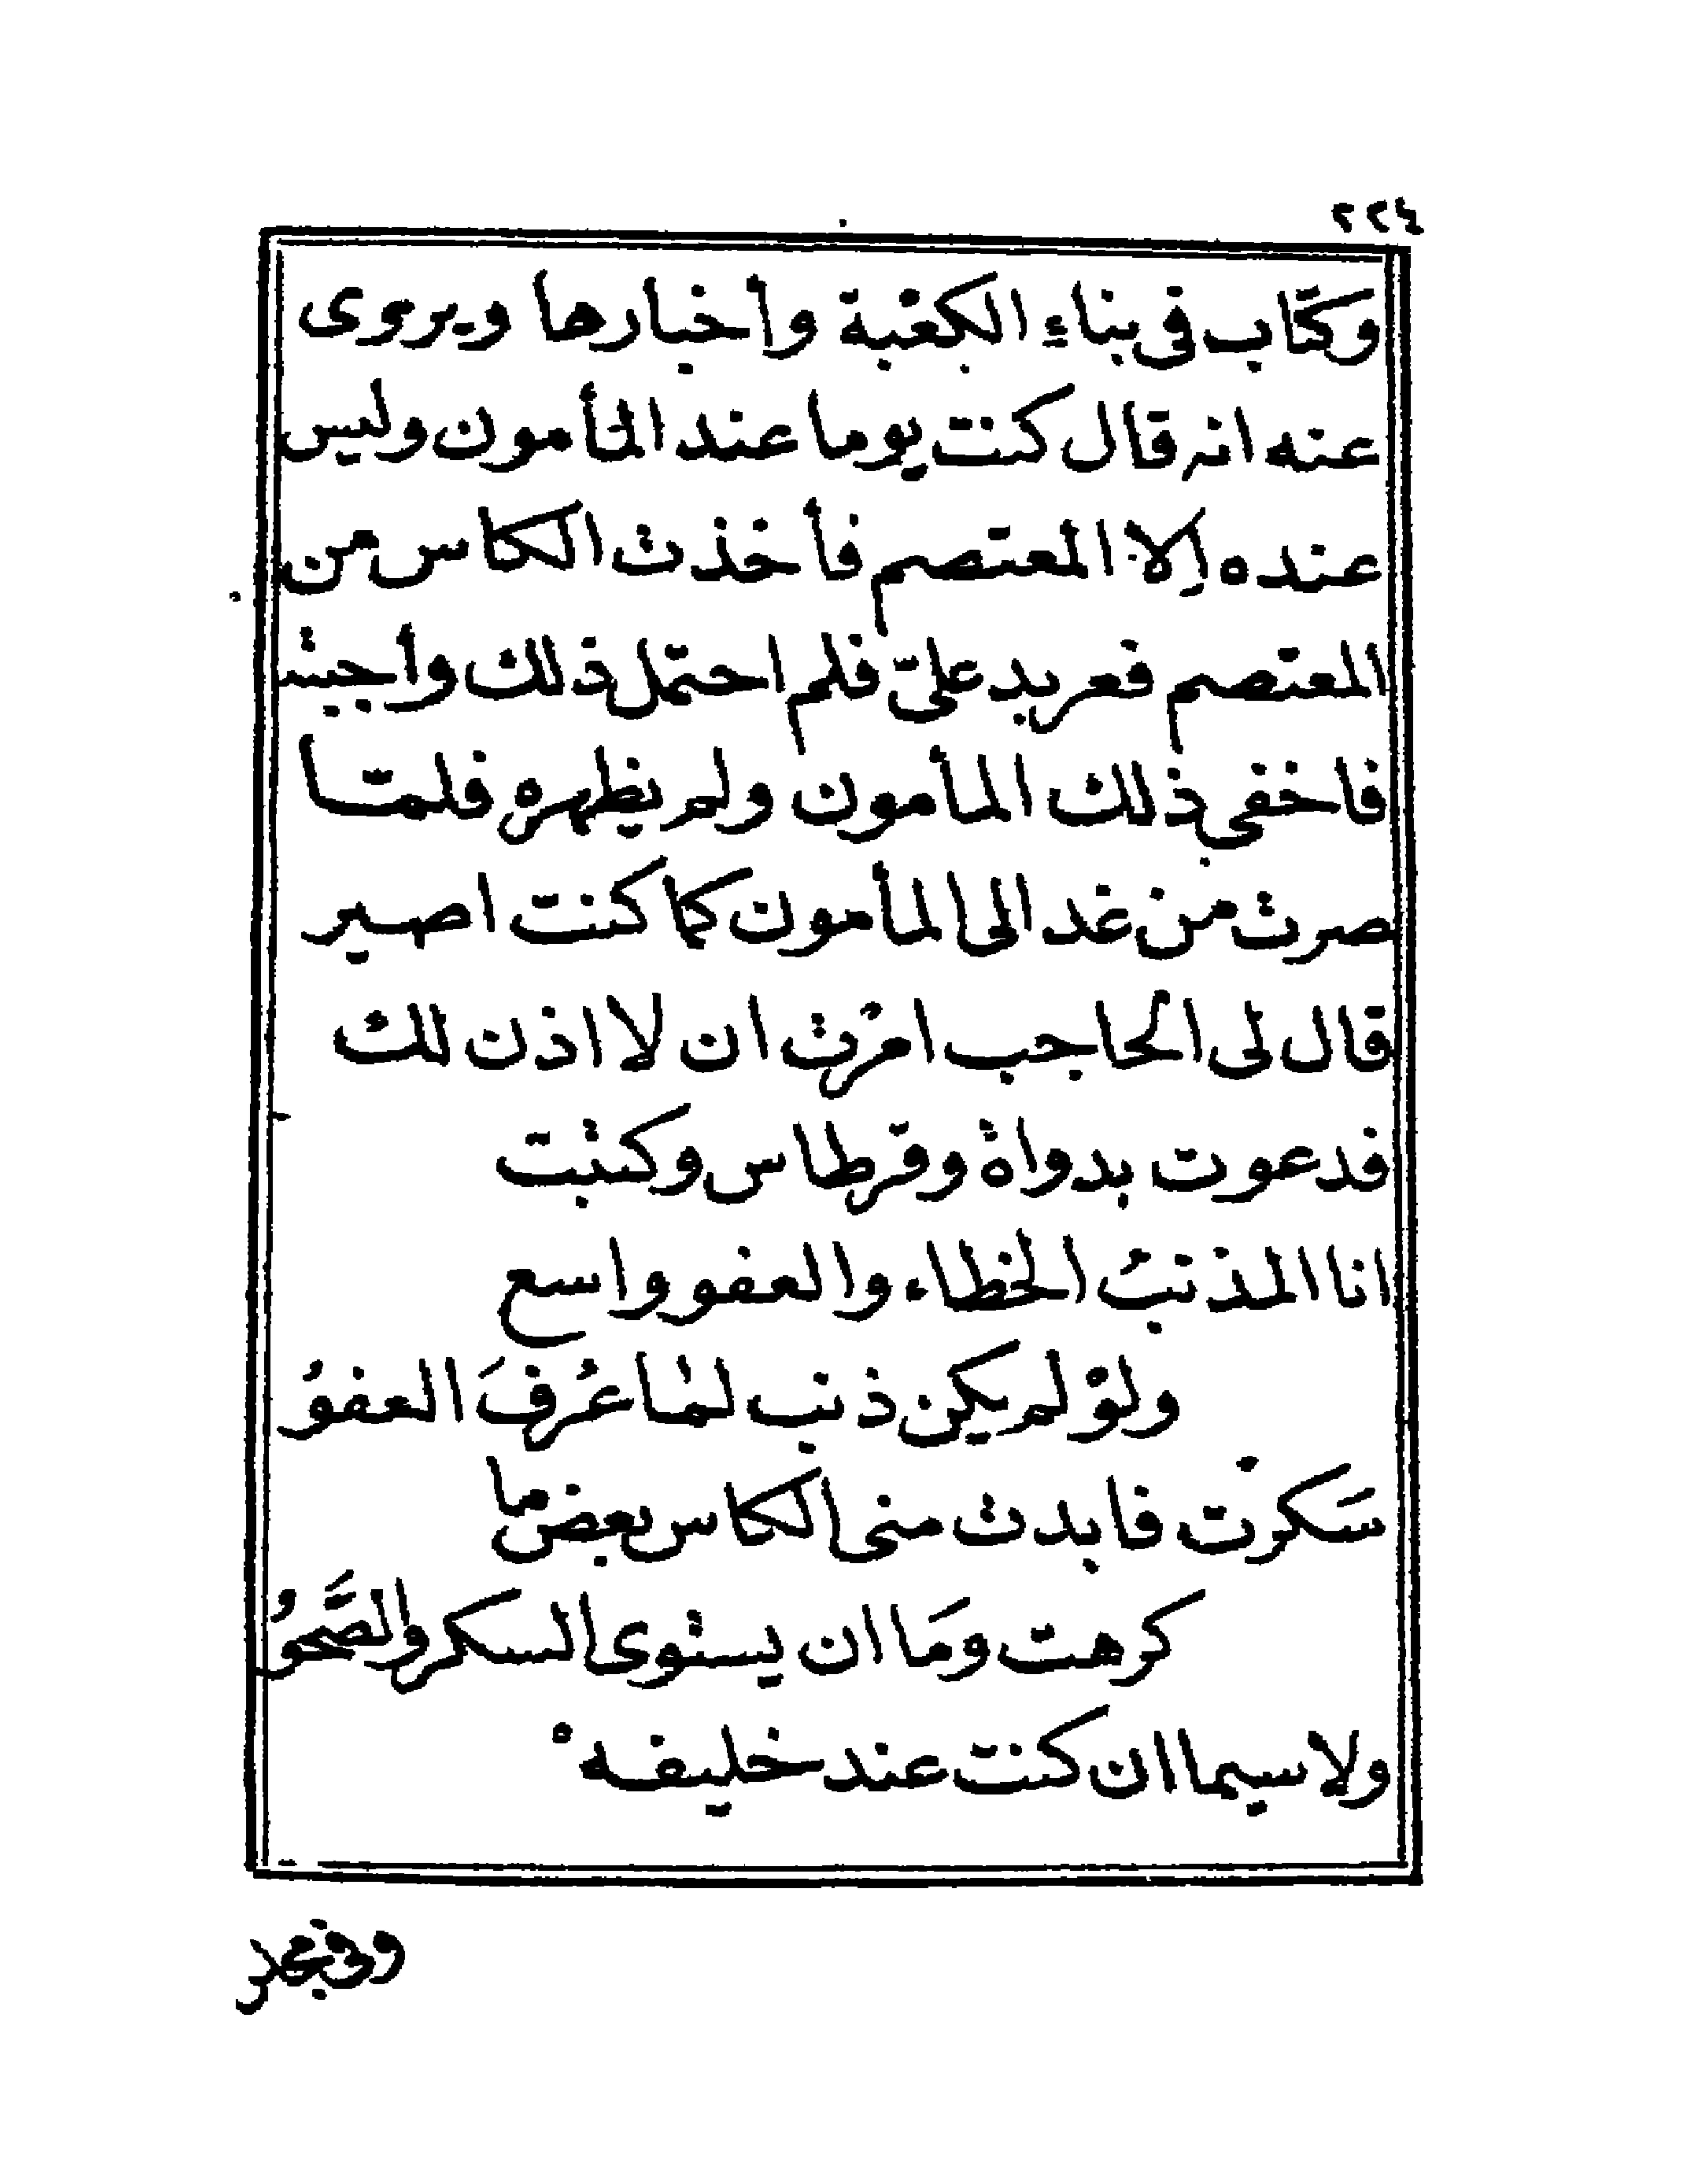 ٢٢٤
وكتاب في بناءِ الكعبة وأخبارها ويروى
عنه انه قال كنت يوما عند المأمون وليس
عنده إلا المعتصم فأخذت الكاس من
المعتصم فعربد علىّ فلم احتمل ذلك وأجبته
فاخفى ذلك المأمون ولم يظهره فلمّا
صرت من غد الى المأمون كما كنت اصير
قال لى الحاجب امرْت ان لا اذن لك
فدعوت بدواة وقرطاس وكتبت
انا المذنبُ الخطاء والعفو واسع
ولوْ لم يكن ذنب لما عُرفَ العفوُ
سَكرت فابدت منى الكاس بعض ما
كرهت ومَا ان يستوى السكر والصَّحوُ
ولا سيما ان كنت عند خليفهْ
وفى